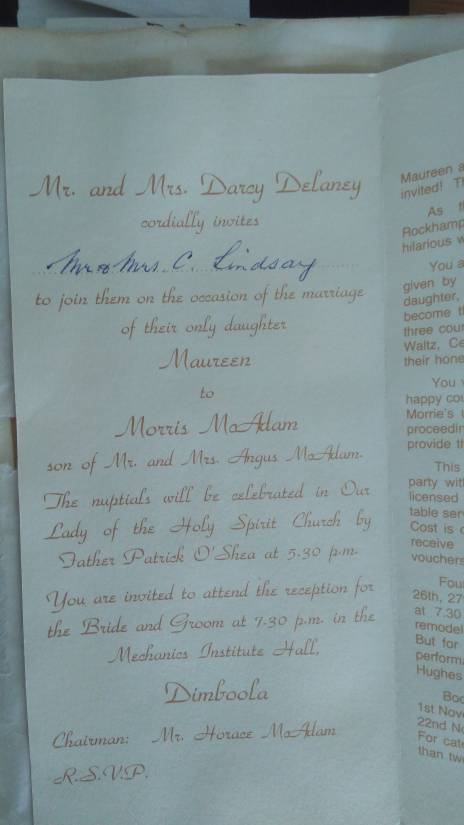 Mr. and Mrs. Darcy Delaney
cordially invites
Mr & Mrs. C. Lindsay
to join them on the occasion of the marriage
of their only daughter
Maureen
to
Morris McAdam
son of Mr. and Mrs. Angus McAdam.
The nuptials will be celebrated in Our
Lady of the Holy Spirit Church by
Father Patrick O'Shea at 5.30 p.m.
You are invited to attend the reception for
the Bride and Groom at 7.30 p.m. in the
Mechanics Institute Hall,
Dimboola
Chairman: Mr. Horace McAdam
R.S.V.P.
Maureen
invited!
As
hilarious
You
given by
daughter,
become
three
Waltz,
their
You
happy
Morrie's
provide
This
party
licensed
table
Cost is
receive
vouchers
26th,
at 7.30
But for
Hughes
1st
22nd
For
than